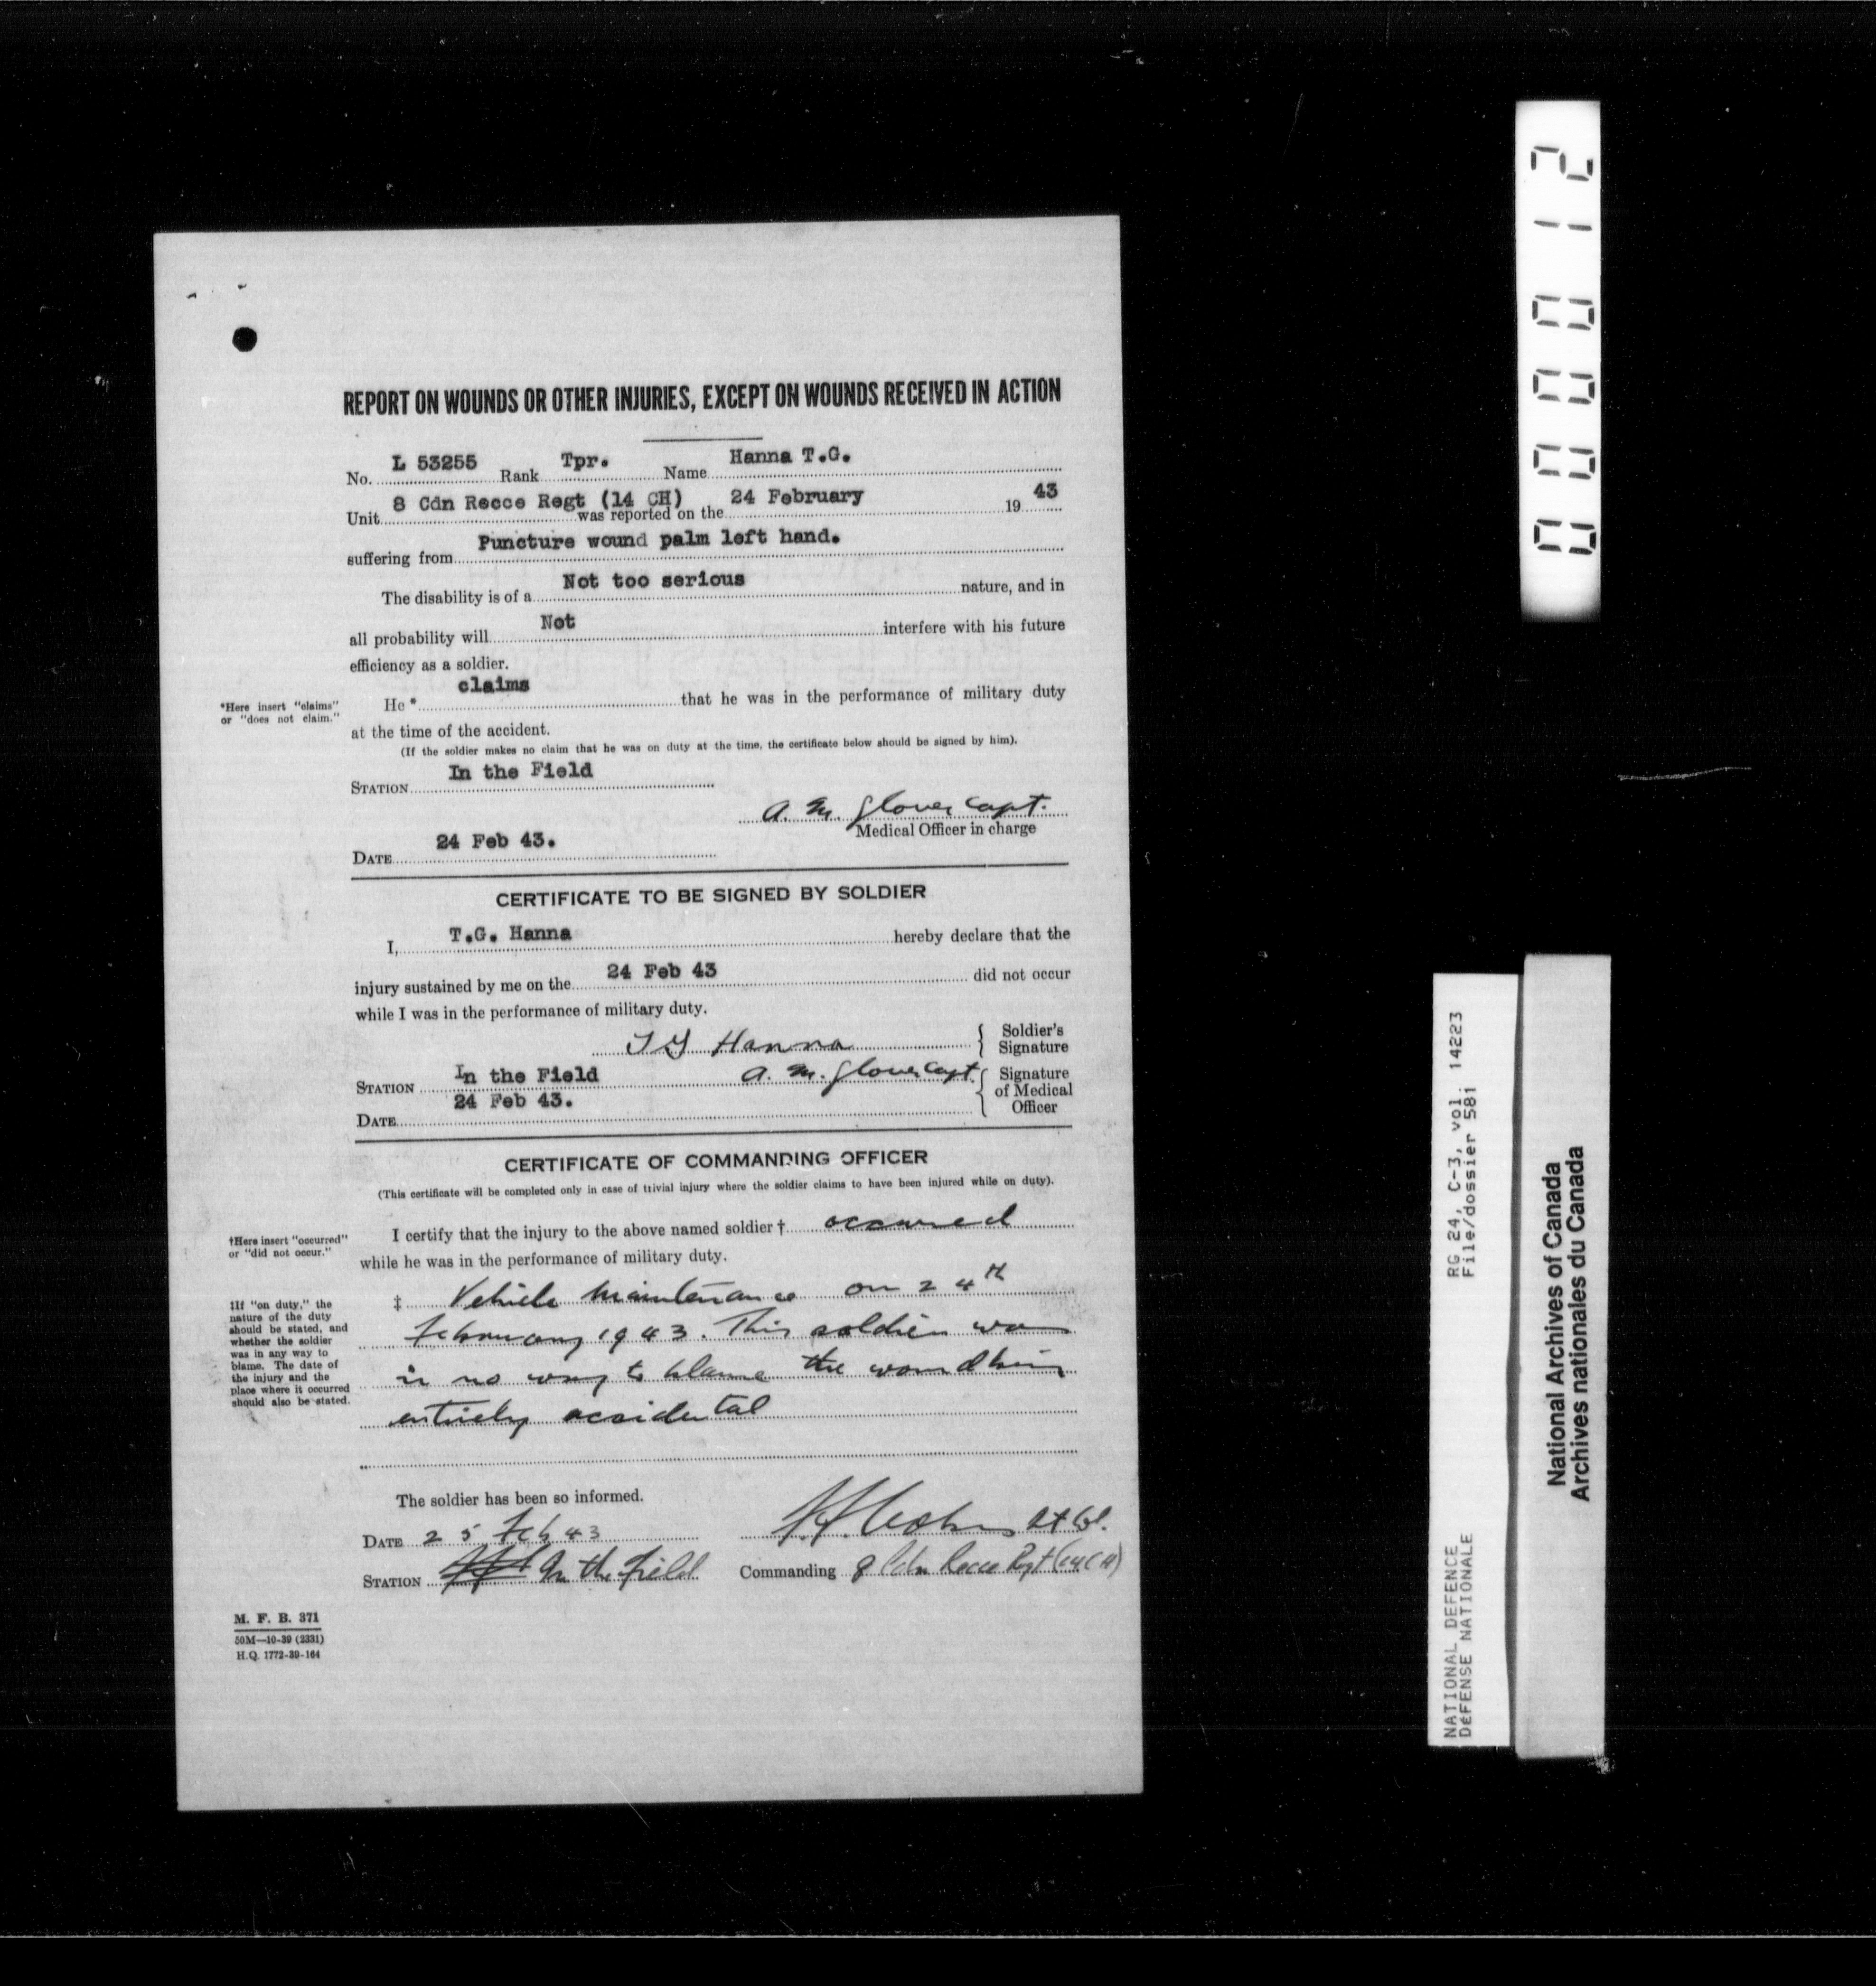 REPORT ON WOUNDS OR OTHER INJURIES, EXCEPT ON WOUNDS RECEIVED IN ACTION
No. L 53255 Rank Tpr. Name Hanna T.G.
Unit 8 Cdn Recce Regt (14 CH) was reported on the 24 February 19 43
suffering from Puncture wound palm left hand.
The disability is of a Not too serious nature, and in
all probability will Not interfere with his future
efficiency as a soldier.
*Here insert "claims"
or "does not claim."
He * claims that he was in the performance of military duty
at the time of the accident.
(If the soldier makes no claim that he was on duty at the time, the certificate below should be signed by him).
STATION In the Field
A. M. Glover Capt.
Medical Officer in charge
DATE 24 Feb 43.
CERTIFICATE TO BE SIGNED BY SOLDIER
I, T.G. Hanna hereby declare that the
injury sustained by me on the 24 Feb 43 did not occur
while I was in the performance of military duty.
T G Hanna { Soldier's Signature
STATION In the Field A. M. Glover Capt. { Signature of Medical Officer
DATE 24 Feb 43.
CERTIFICATE OF COMMANDING OFFICER
(This certificate will be completed only in case of trivial injury where the soldier claims to have been injured while on duty).
I certify that the injury to the above named soldier † occurred
†Here insert "occurred"
or "did not occur."
while he was in the performance of military duty.
‡ Vehicle maintenance on 24th
February 1943. This soldier was
in no way to blame the wound being
entirely accidental
‡If "on duty," the
nature of the duty
should be stated, and
whether the soldier
was in any way to
blame. The date of
the injury and the
place where it occurred
should also be stated.
The soldier has been so informed.
DATE 25 Feb 43 Lt Col.
STATION In the field Commanding 8 Cdn Recce Regt (14 CH)
M. F. B. 371
50M—10-39 (2331)
H.Q. 1772-39-164
000012
RG 24, C-3, vol. 14223
File/dossier 581
NATIONAL DEFENCE
DÉFENSE NATIONALE
National Archives of Canada
Archives nationales du Canada